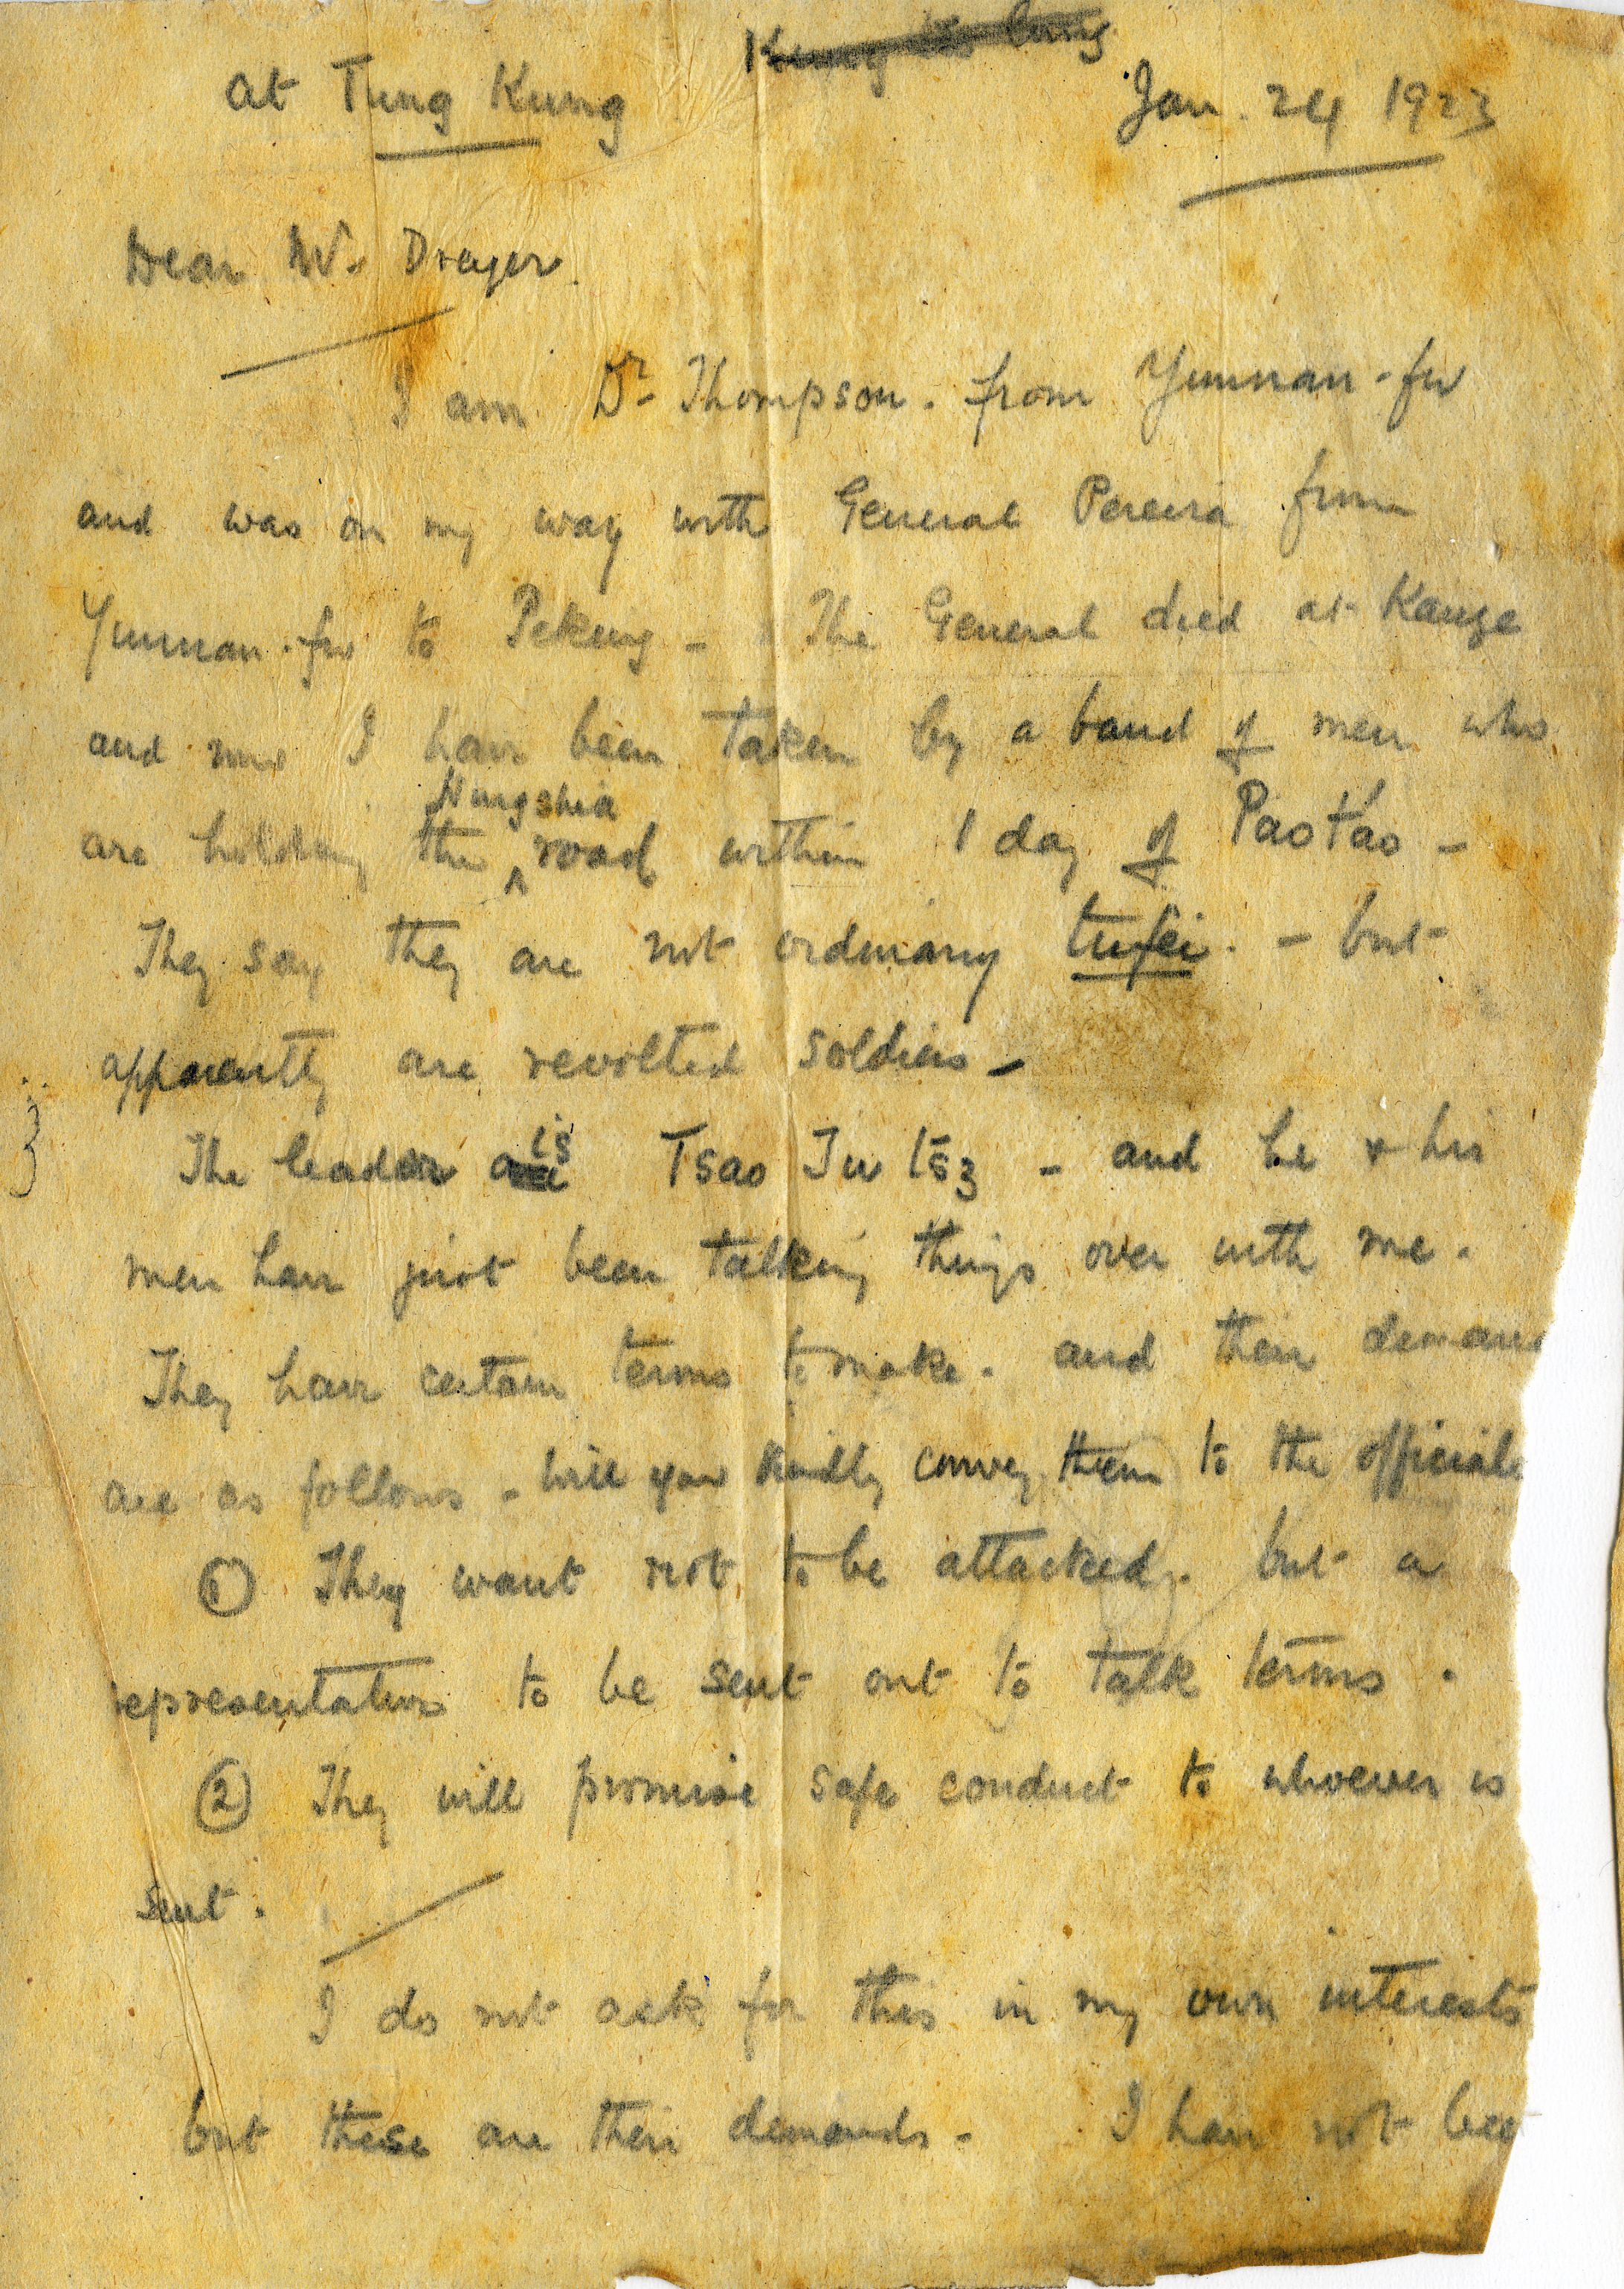 at Tung Kung Jan. 24 1923
Dear Mr. Dreyer.
I am Dr. Thompson. from Yunnan-fu
and was on my way with General Pereira from
Yunnan-fu to Peking - The General died at Kanze
and now I have been taken by a band of men who
are holding the Ningshia road within 1 day of Paot'ao -
They say they are not ordinary tufei. - but
apparently are revolted soldiers -
The leader is Tsao Ju tsz - and he & his
men have just been talking things over with me.
They have certain terms to make. and their deman
are as follows - will you kindly convey them to the officials
① They want not to be attacked. but a
representative to be sent out to talk terms.
② They will promise safe conduct to whoever is
sent.
I do not ask for this in my own interests
but these are their demands. I have not bee